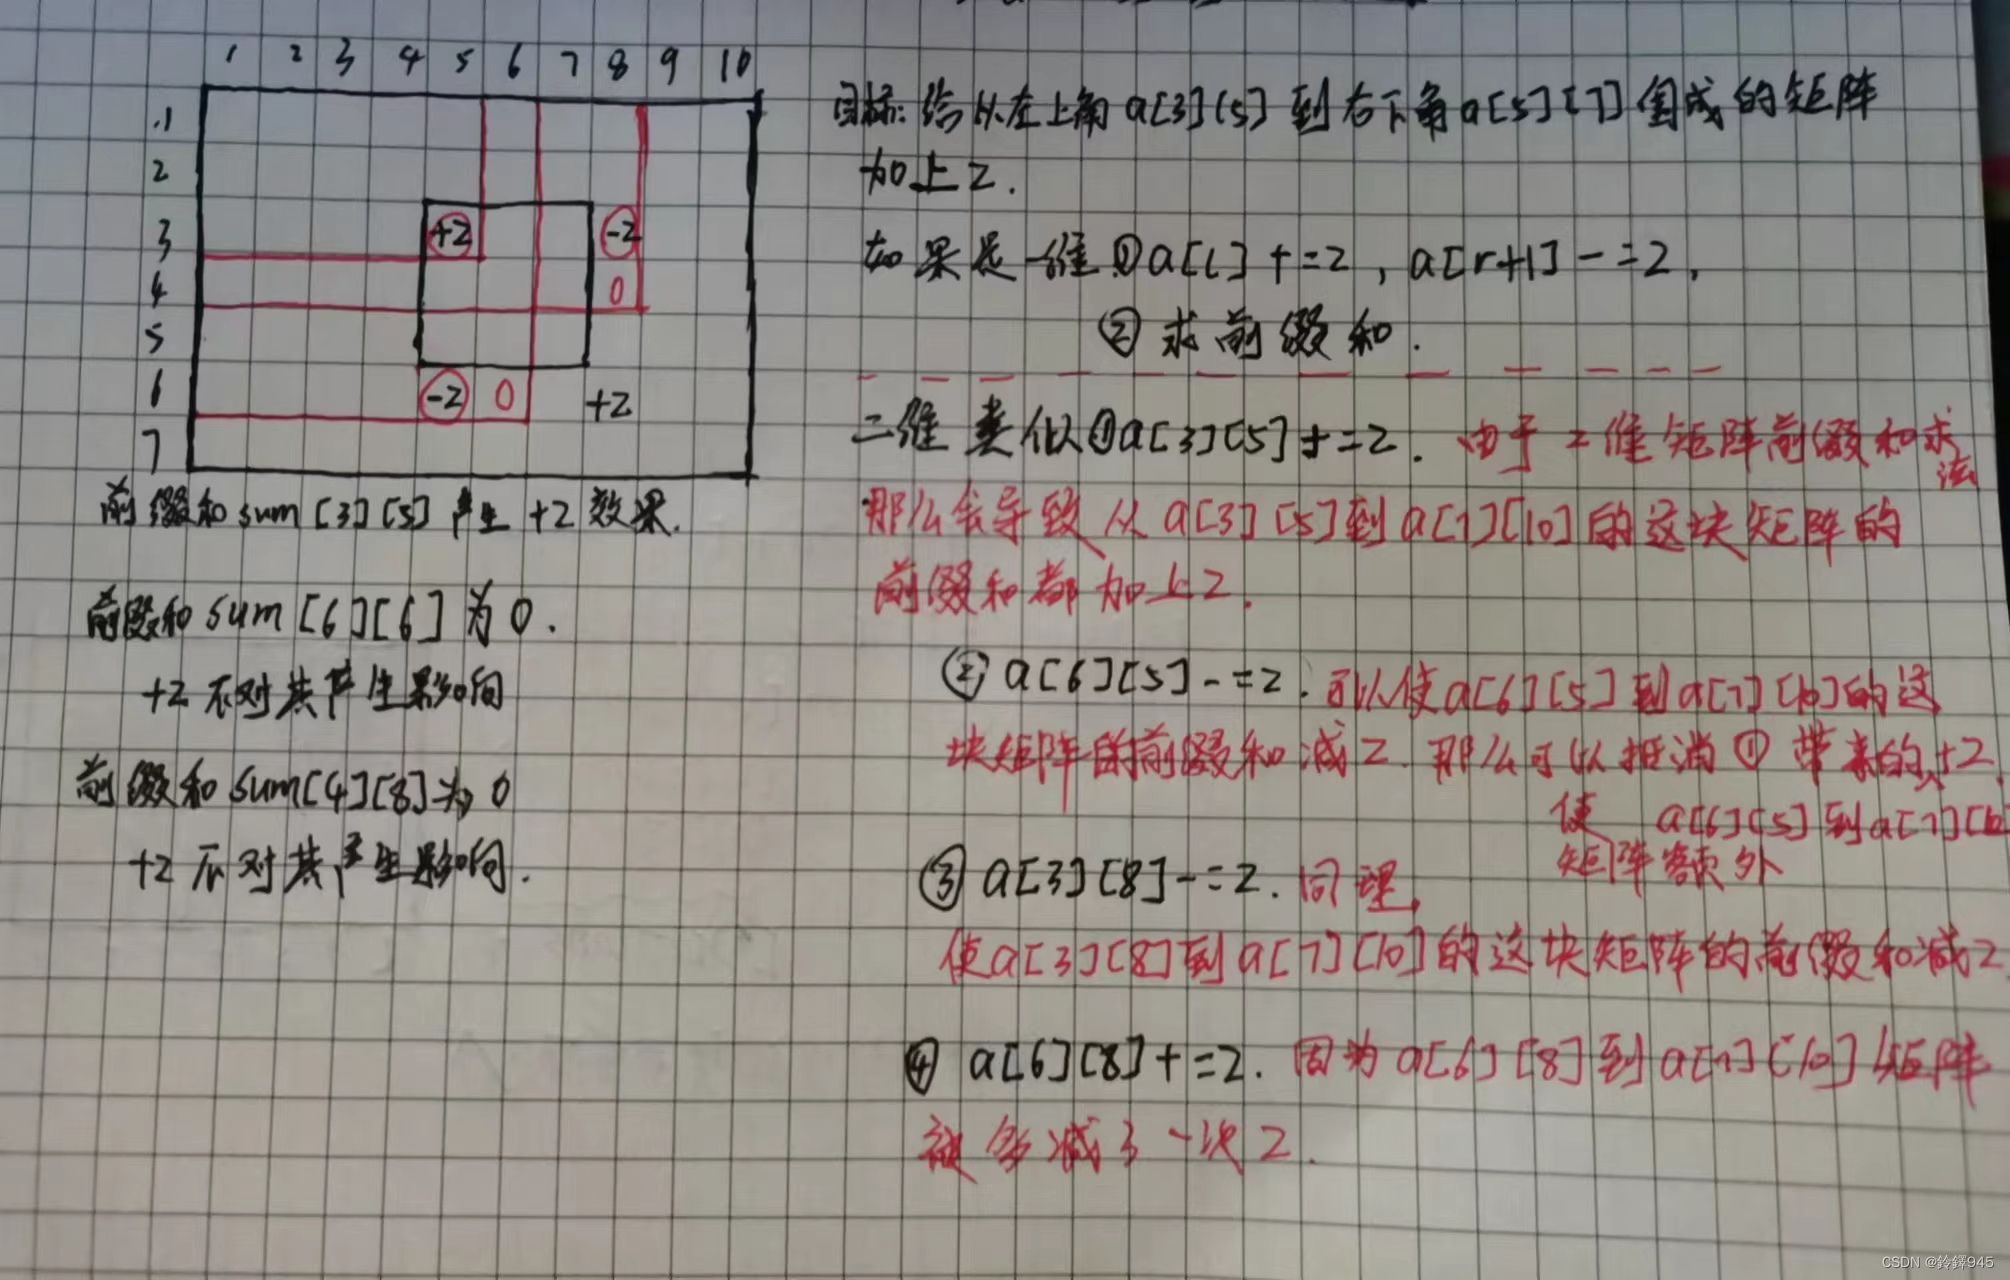 1 2 3 4 5 6 7 8 9 10
1
2
3 +2 -2
4 0
5
6 -2 0 +2
7
前缀和 sum [3][5] 产生 +2 效果.
前缀和 sum [6][6] 为 0.
+2 不对其产生影响
前缀和 sum[4][8]为 0
+2 不对其产生影响.
目标: 给从左上角 a[3][5] 到右下角 a[5][7] 围成的矩阵
加上2.
如果是一维 ① a[l] +=2 , a[r+1] -=2,
② 求前缀和.
二维类似 ① a[3][5] +=2. 由于二维矩阵前缀和求
法
那么会导致从 a[3][5]到 a[7][10] 的这块矩阵的
前缀和都加上2.
② a[6][5] -=2. 可以使a[6][5] 到 a[7][10]的这
块矩阵的前缀和减2. 那么可以抵消 ① 带来的+2
使 a[6][5] 到a[7][10
矩阵额外
③ a[3][8] -=2. 同理,
使a[3][8]到 a[7][10]的这块矩阵的前缀和减2
④ a[6][8] +=2. 因为 a[6][8] 到 a[7][10] 矩阵
被多减了一次2.
CSDN @鈴鐸945